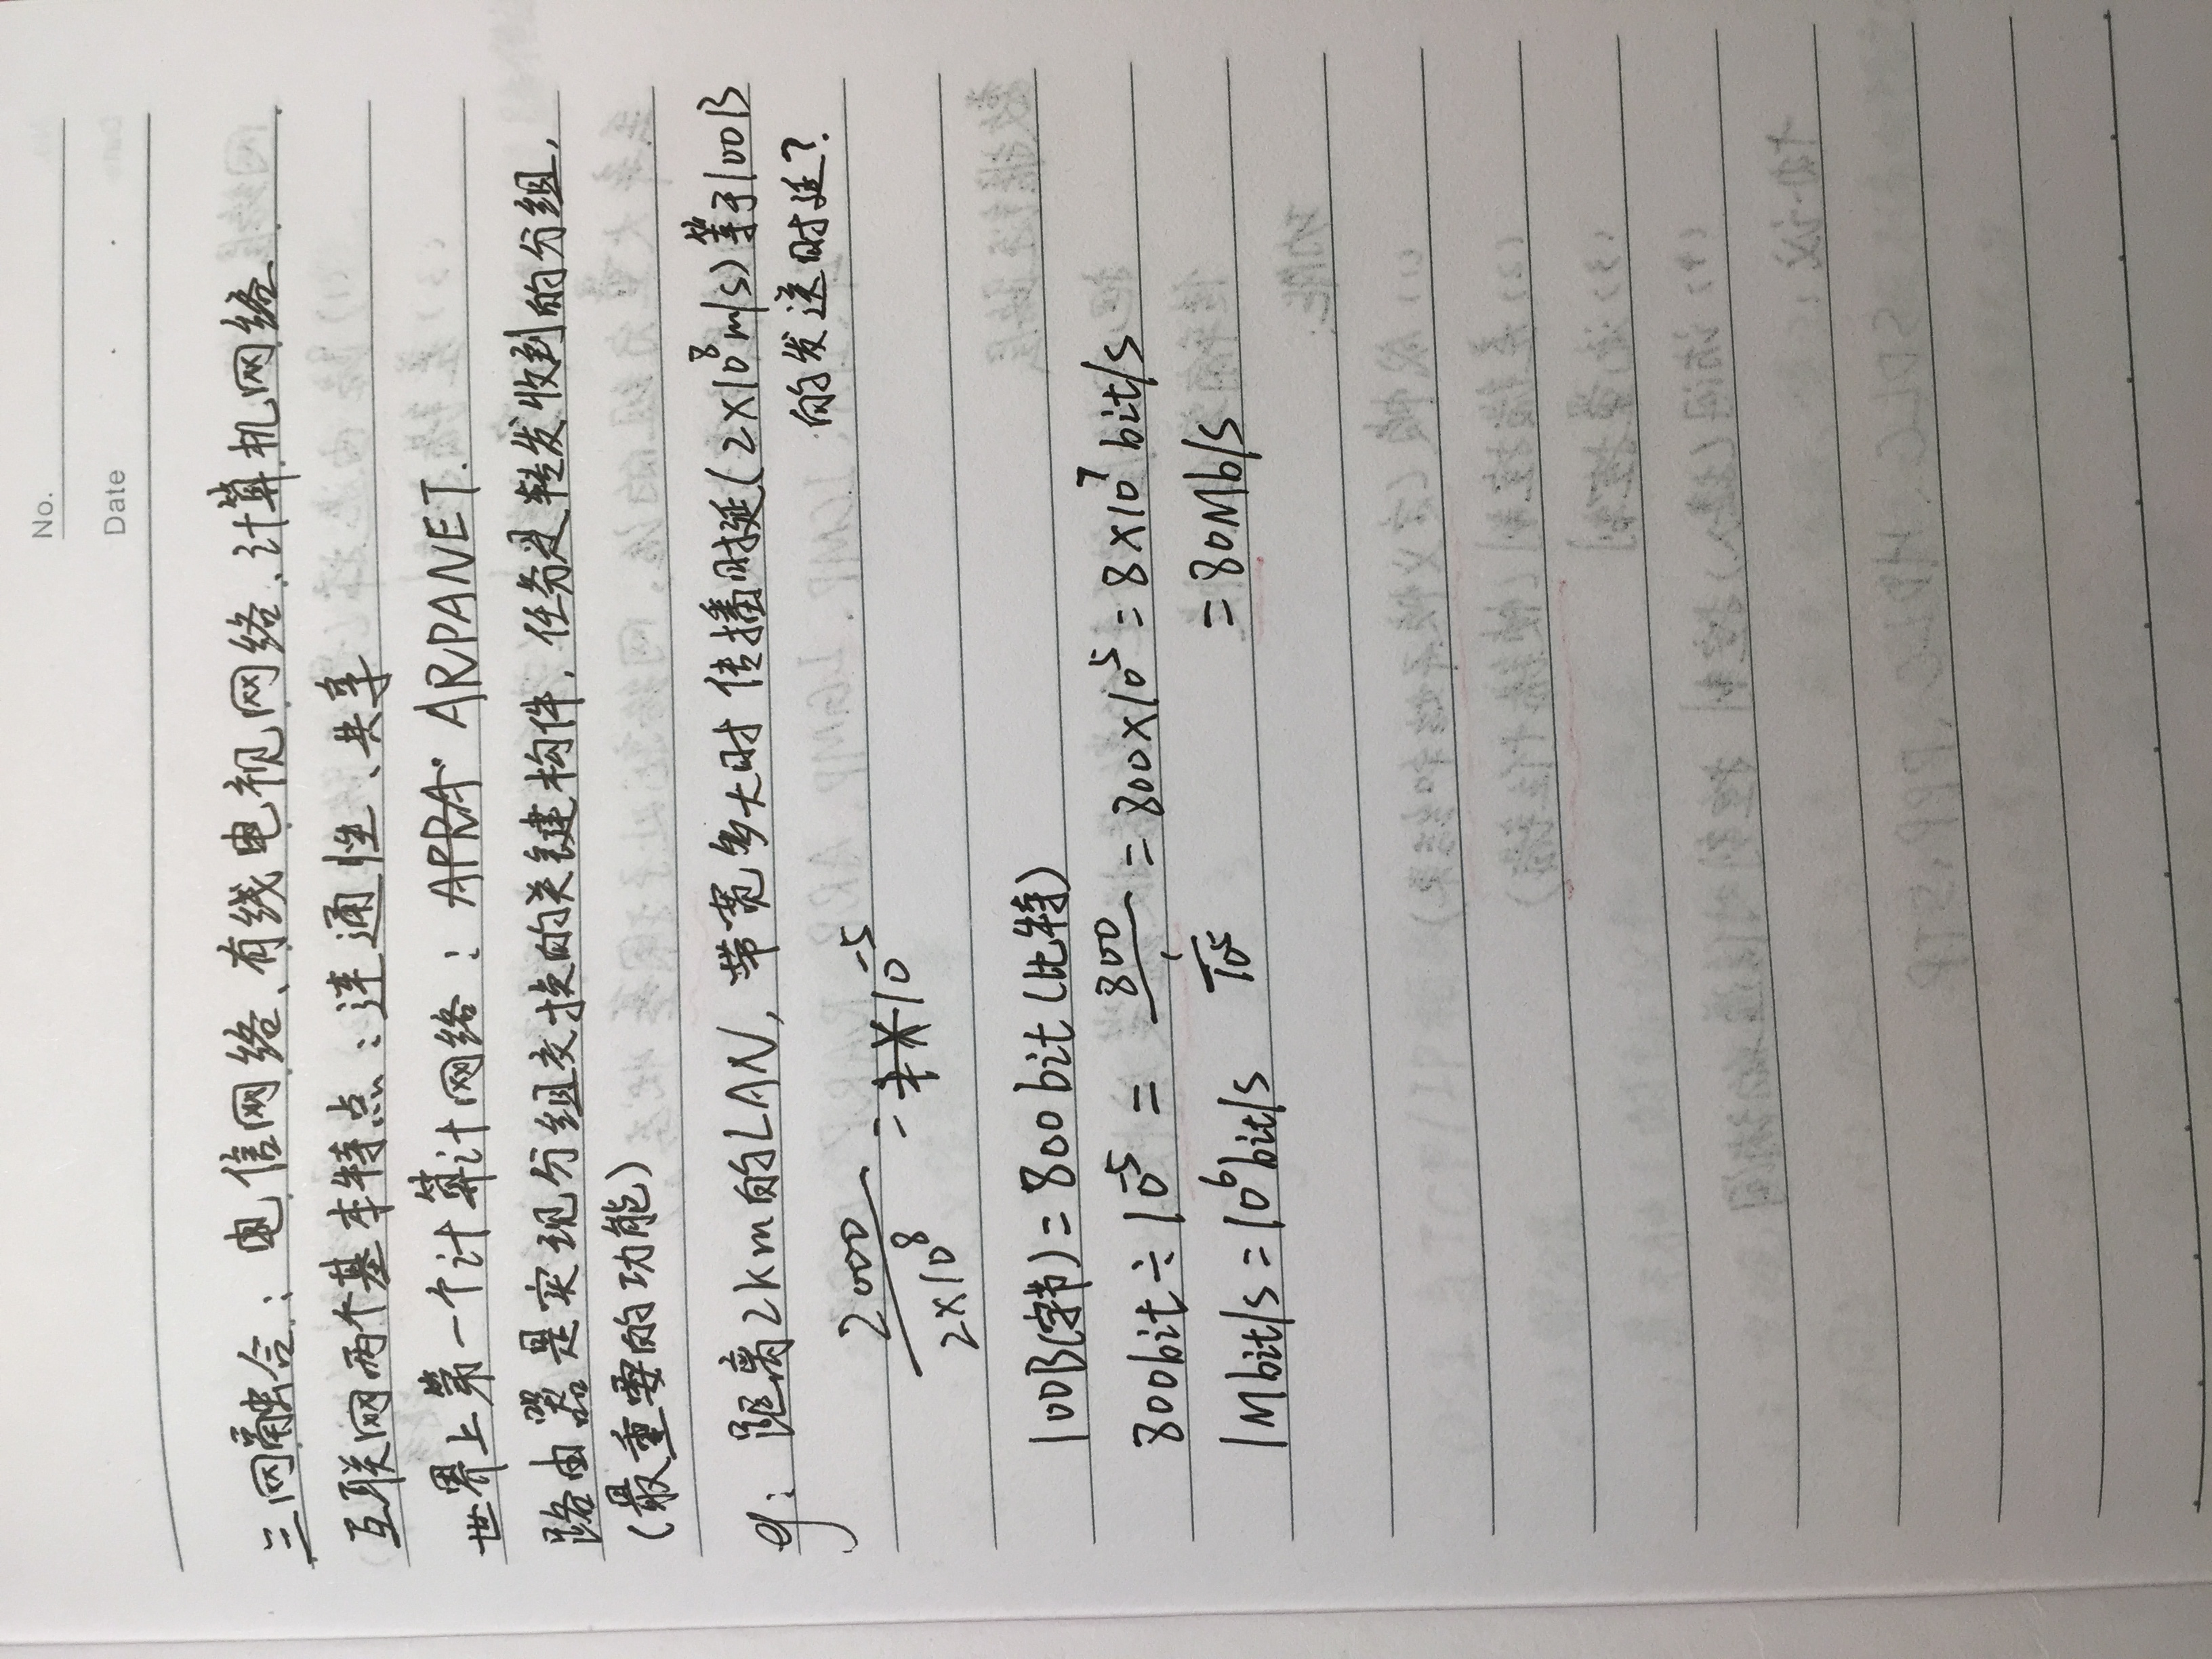 No.
Date
三网融合：电信网络、有线电视网络、计算机网络.
互联网两个基本特点：连通性、共享
世界上第一个计算计网络：APRA ARPANET.
路由器是实现分组交换的关键构件，任务是转发收到的分组，
（最重要的功能）
eg：距离2km的LAN，带宽多大时 传播时延(2×10⁸m/s)等于100B
的发送时延？
2000/2×10⁸ = 10⁻⁵
100B(字节)=800bit(比特)
800bit÷10⁻⁵ = 800/ = 800×10⁵ = 8×10⁷bit/s
1Mbit/s=10⁶bit/s 10⁵ =80Mb/s